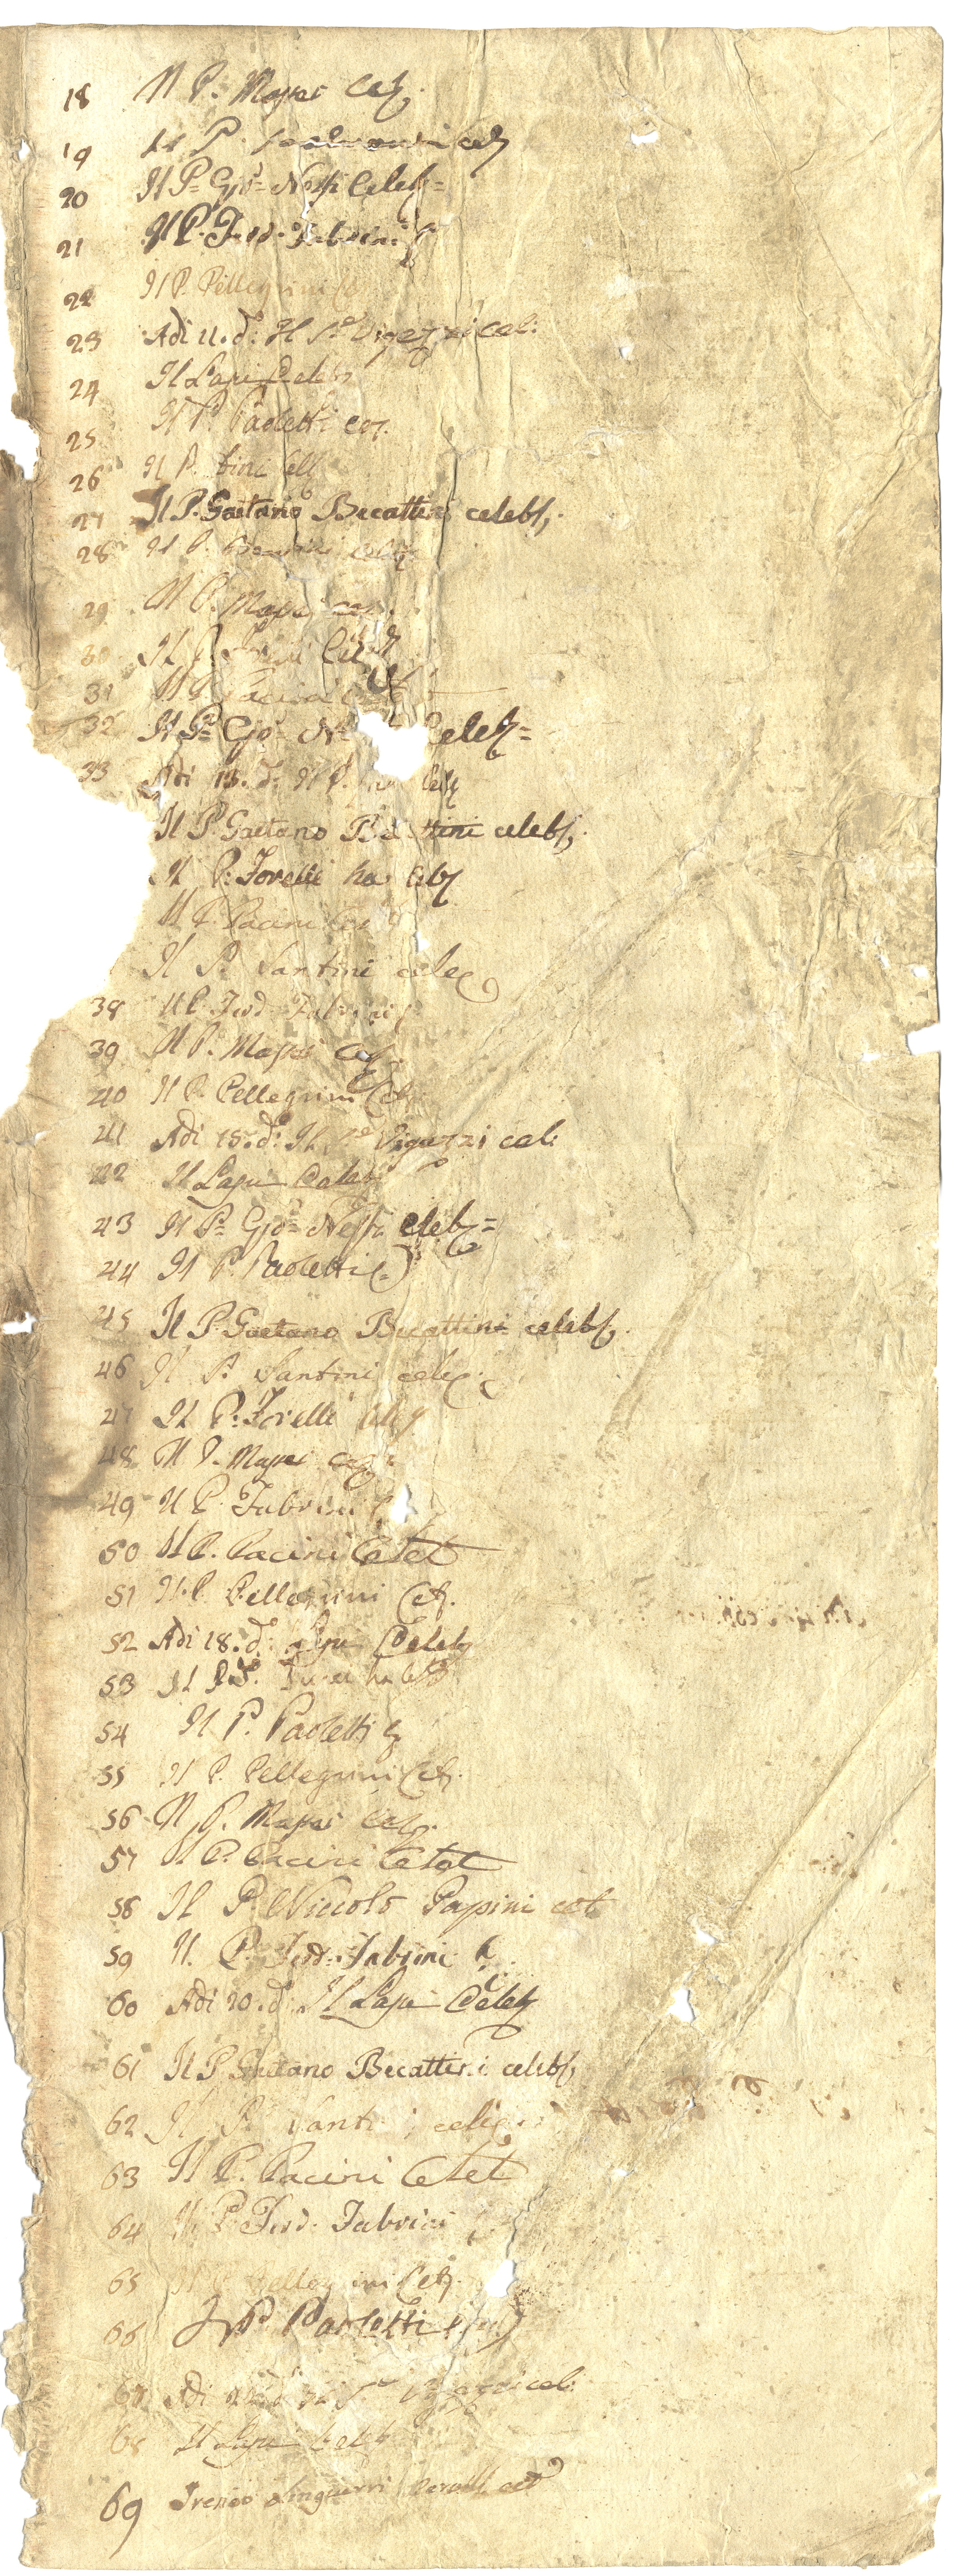 18 Il P. Maffei Cel.
19 Il P.
20 Il P. Gio. Nessi Celeb. =
21 Il P. Ferd. Fabrini
22 Il P. Pellegrini C
23 Adi 11. d. Il P. Vigezzi cel:
24 Il Lapi Celeb
25 Il P. Paoletti cel.
26 Il P. tini Cell
27 Il P. Gaetano Becattini celeb.
28 Il P.
29 Il P. Maffei cel
30 Il P.
31 Il P. Pacini
32 Il P. Gio. N Celeb. =
33 Adi 13. d. Il P. Celeb
Il P. Gaetano Be ttini celeb.
Il P. Torelli ha Celeb
Il P. Pacini Cel
Il P. Santini cele
38 Il P. Ferd. Fabrini
39 Il P. Maffei Cel
40 Il P. Pellegrini Cel.
41 Adi 15. d: Il P. Vigezzi cel:
42 Il Lapi Celeb
43 Il P. Gio. Nessi Celeb. =
44 Il P. Paoletti C.
45 Il P. Gaetano Becattini celeb.
46 Il P. Santini cele
47 Il P. Torelli Celeb
48 Il P. Maffei Cel
49 Il P. Fabrini
50 Il P. Pacini Celet
51 Il P. Pellegrini Cel.
52 Adi 18. d. Lapi Celeb
53 Il P. ha
54 Il P. Paoletti C
55 Il P. Pellegrini Cel.
56 Il P. Maffei Cel.
57 Il P. Pacini Celet
58 Il P. Niccolò Papini cel
59 Il P. Ferd. Fabrini C
60 Adi 20. d. Il Lapi Celeb
61 Il P. Gaetano Becattini celeb.
62 Il P. Santi i cele
63 Il P. Pacini Celet
64 Il P. Ferd. Fabrini
65 Il P. Pelleg ini Cel.
66 Il P. Paoletti
67 Adi cel:
68 Il Lapi Celeb
69 Ireneo cel